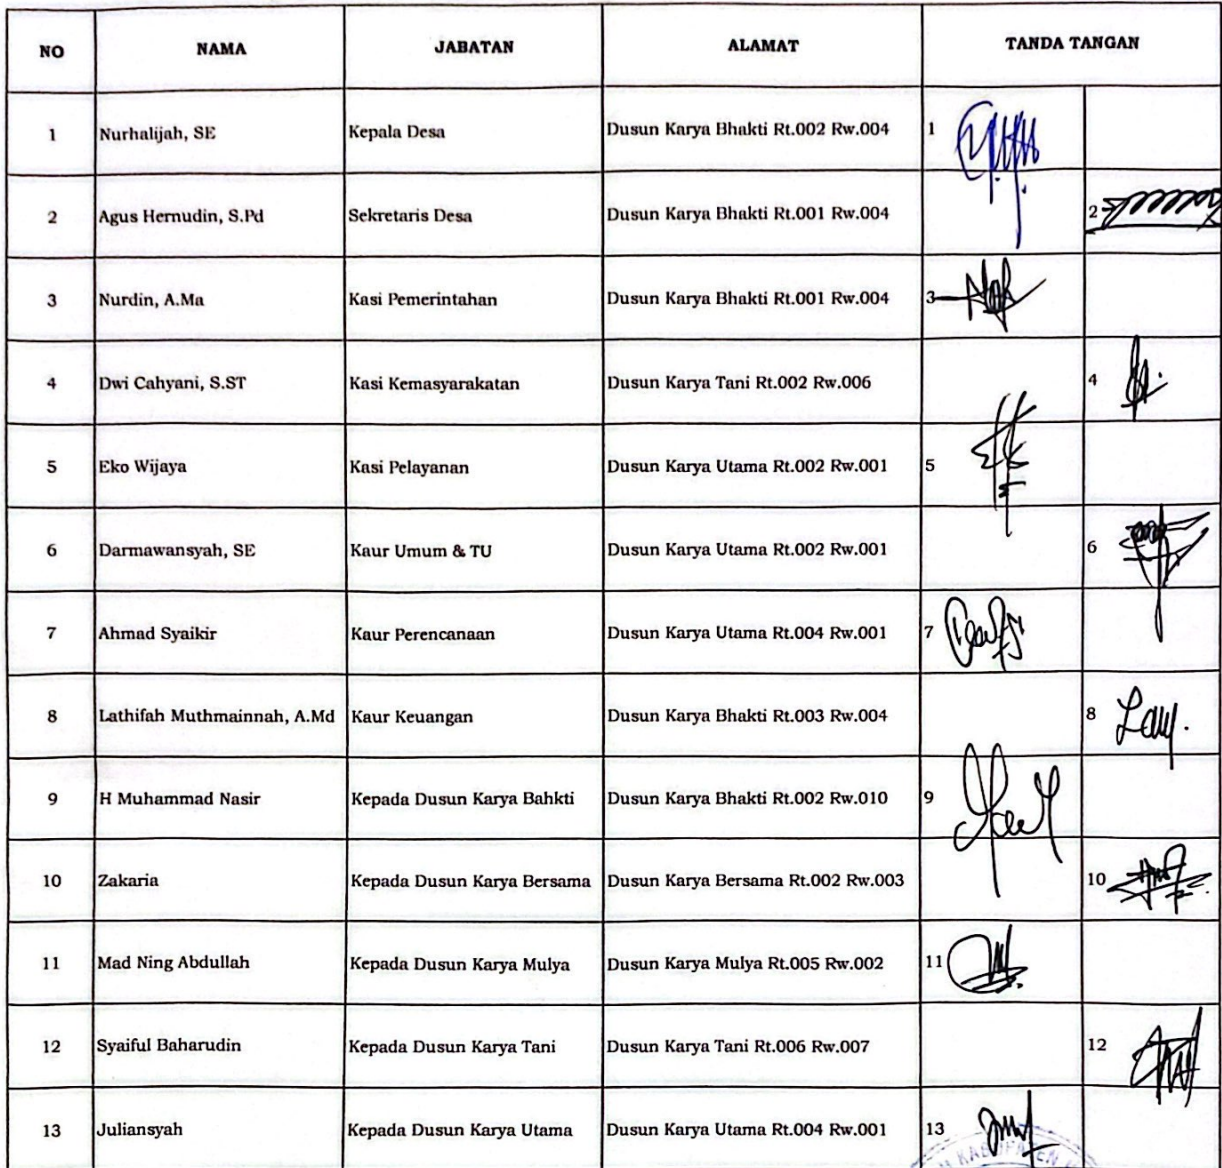 NO NAMA JABATAN ALAMAT TANDA TANGAN
1 Nurhalijah, SE Kepala Desa Dusun Karya Bhakti Rt.002 Rw.004 1
2 Agus Hernudin, S.Pd Sekretaris Desa Dusun Karya Bhakti Rt.001 Rw.004 2
3 Nurdin, A.Ma Kasi Pemerintahan Dusun Karya Bhakti Rt.001 Rw.004 3
4 Dwi Cahyani, S.ST Kasi Kemasyarakatan Dusun Karya Tani Rt.002 Rw.006 4
5 Eko Wijaya Kasi Pelayanan Dusun Karya Utama Rt.002 Rw.001 5
6 Darmawansyah, SE Kaur Umum & TU Dusun Karya Utama Rt.002 Rw.001 6
7 Ahmad Syaikir Kaur Perencanaan Dusun Karya Utama Rt.004 Rw.001 7
8 Lathifah Muthmainnah, A.Md Kaur Keuangan Dusun Karya Bhakti Rt.003 Rw.004 8
9 H Muhammad Nasir Kepada Dusun Karya Bahkti Dusun Karya Bhakti Rt.002 Rw.010 9
10 Zakaria Kepada Dusun Karya Bersama Dusun Karya Bersama Rt.002 Rw.003 10
11 Mad Ning Abdullah Kepada Dusun Karya Mulya Dusun Karya Mulya Rt.005 Rw.002 11
12 Syaiful Baharudin Kepada Dusun Karya Tani Dusun Karya Tani Rt.006 Rw.007 12
13 Juliansyah Kepada Dusun Karya Utama Dusun Karya Utama Rt.004 Rw.001 13
KABUPATEN